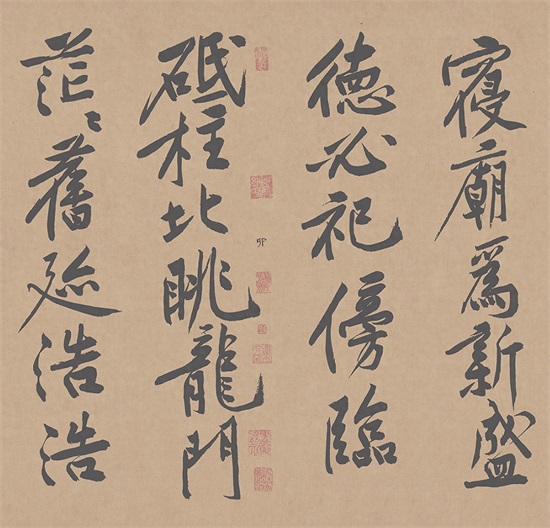 寢廟爲新盛
德必祀傍臨
卯
砥柱北眺龍門
茫〻舊迹浩浩